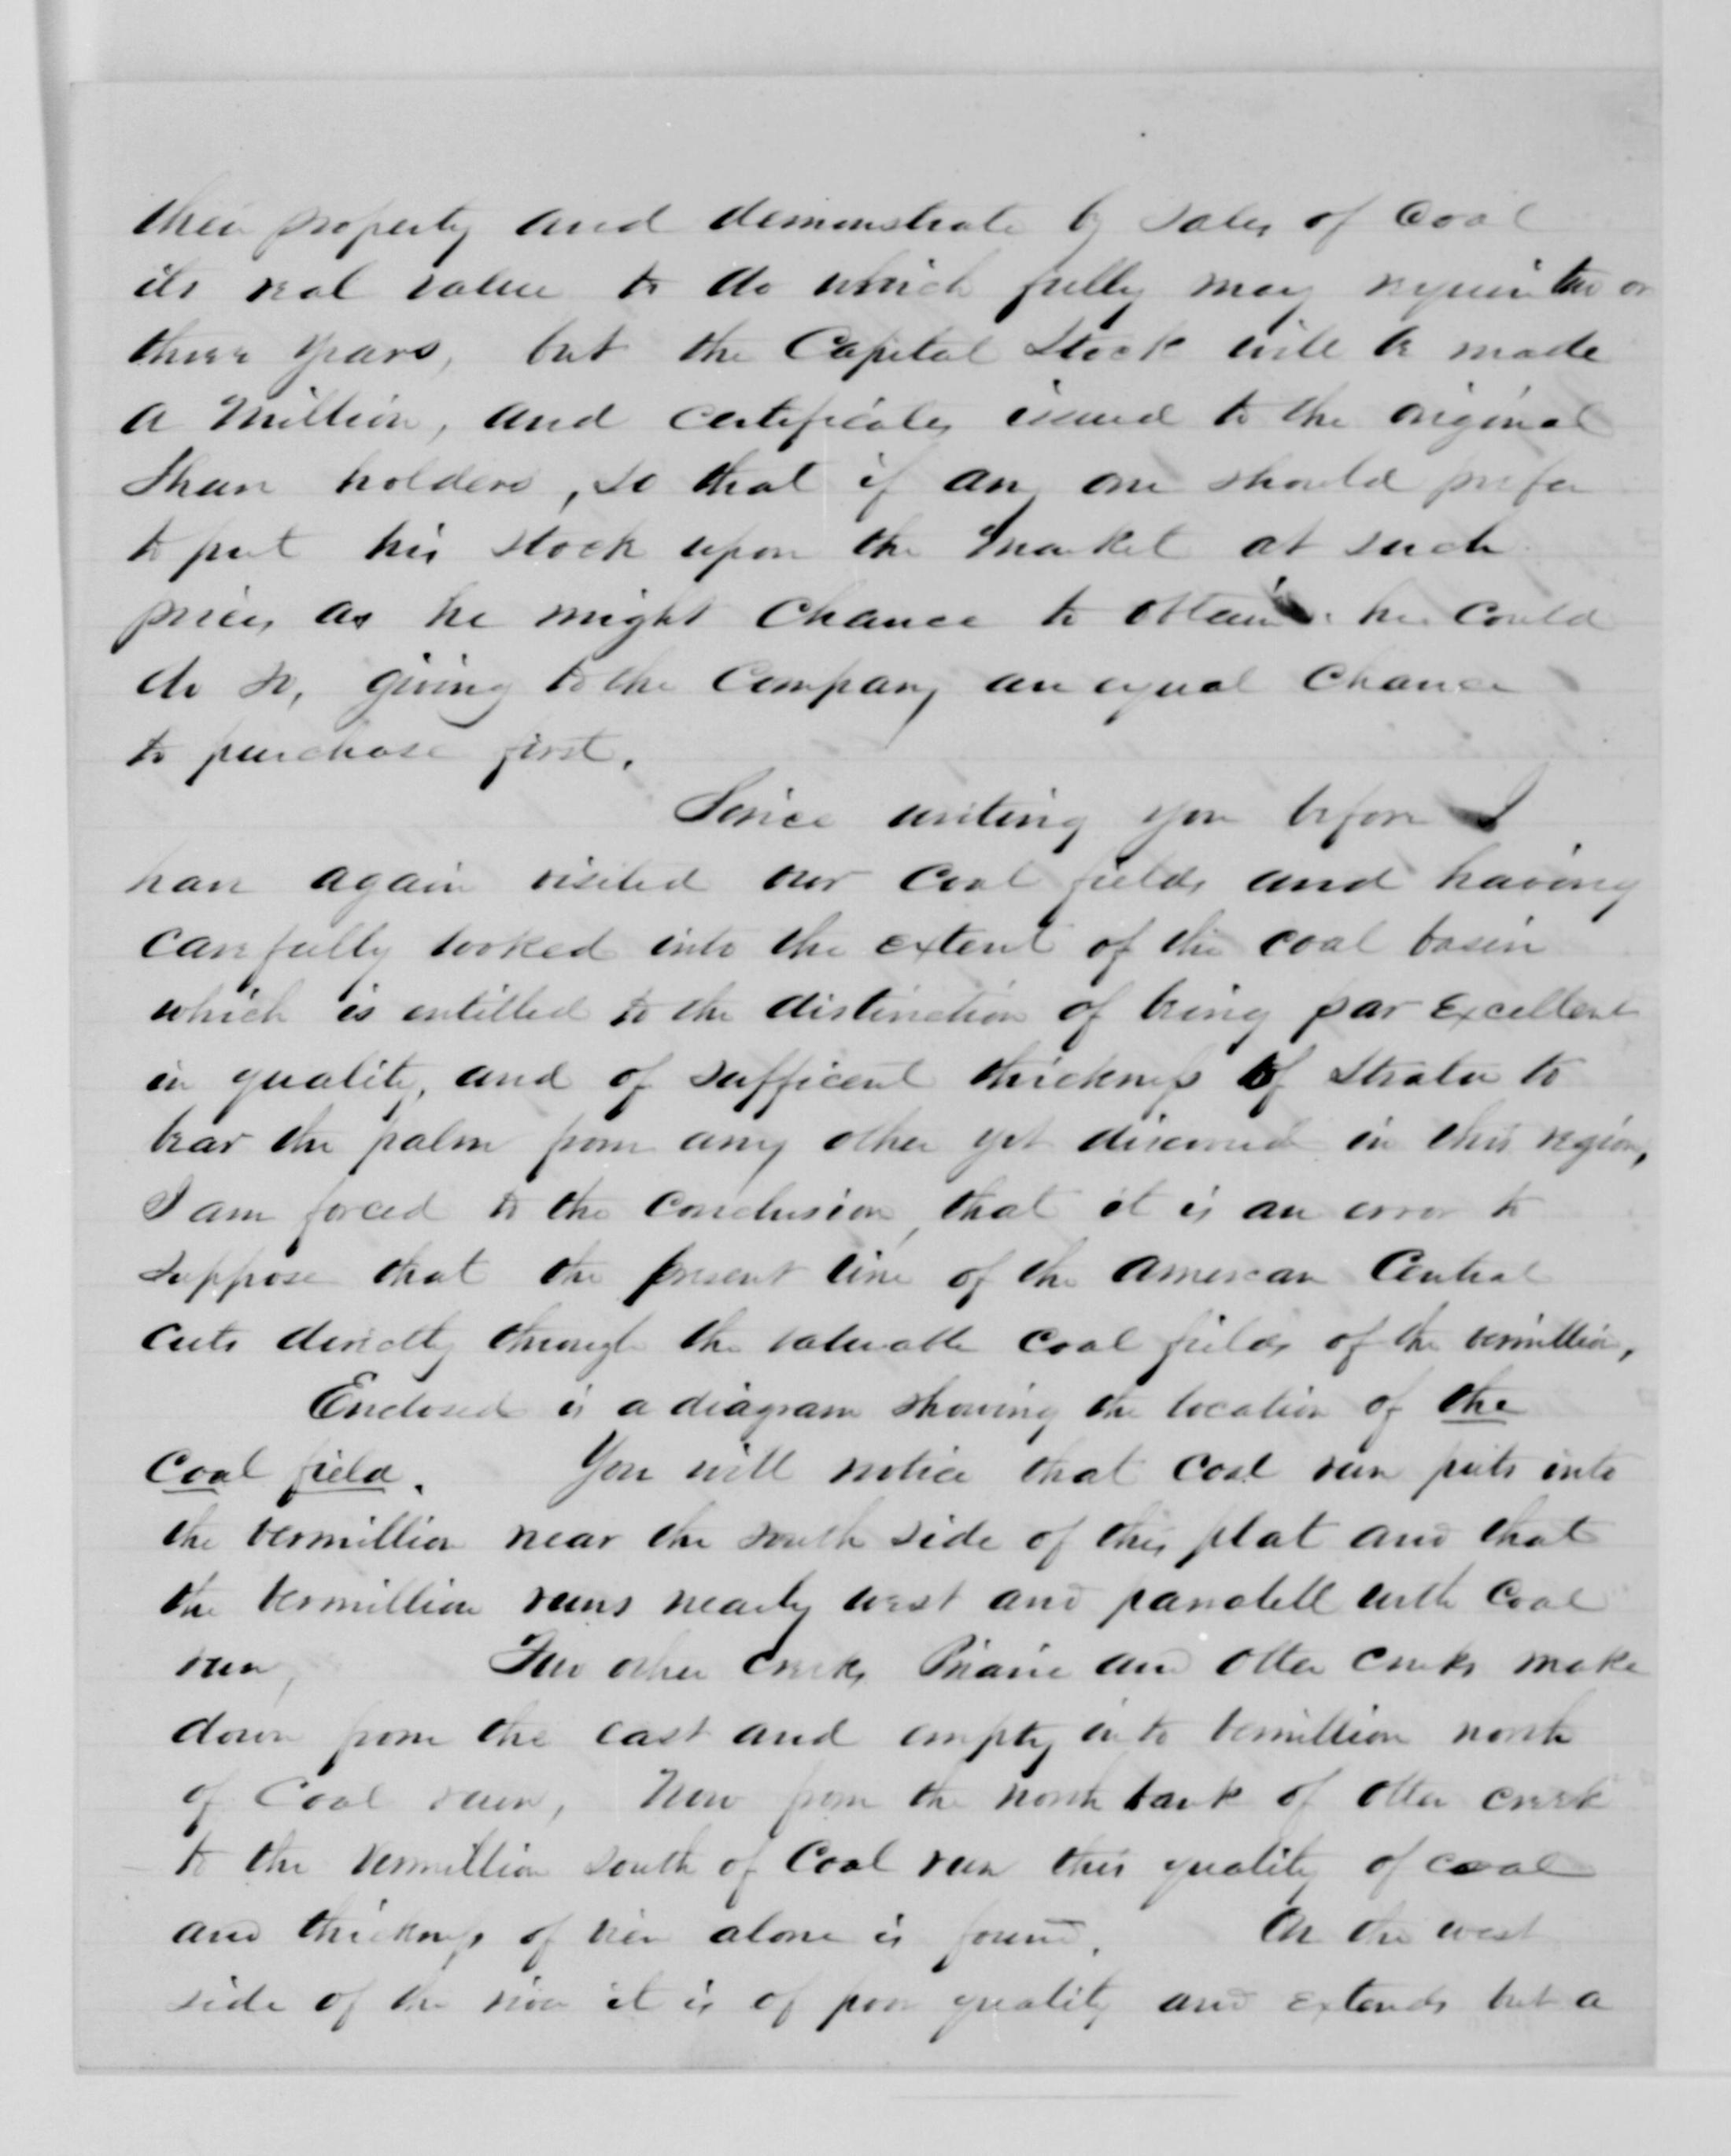 their property and demonstrate by sales of Coal
its real value to do which fully may require two or
three years, but the Capital Stock will be made
a Million, and certificates issued to the original
Share holders, so that if any one should prefer
to put his stock upon the Market at such
prices as he might Chance to obtain he could
do so, giving to the Company an equal Chance
to purchase first.
Since writing you before I
have again visited our Coal fields and having
carefully looked into the extent of the coal basin
which is entitled to the distinction of being par excellent
in quality, and of sufficent thickness of Strata to
bear the palm from any other yet discovered in this region,
I am forced to the conclusion, that it is an error to
suppose that the present line of the American Central
cuts directly through the valuable coal fields of the vermillion,
Enclosed is a diagram showing the location of the
Coal field. You will notice that coal run puts into
the vermillion near the south side of this plat and that
the vermillion runs nearly west and paralell with Coal
run, Two other creeks Prairie and otter creeks make
down from the east and empty into vermillion north
of Coal run, Now from the north bank of otter creek
to the Vermillion south of Coal run this quality of coal
and thickness of vein alone is found. On the west
side of the river it is of poor quality and extends but a